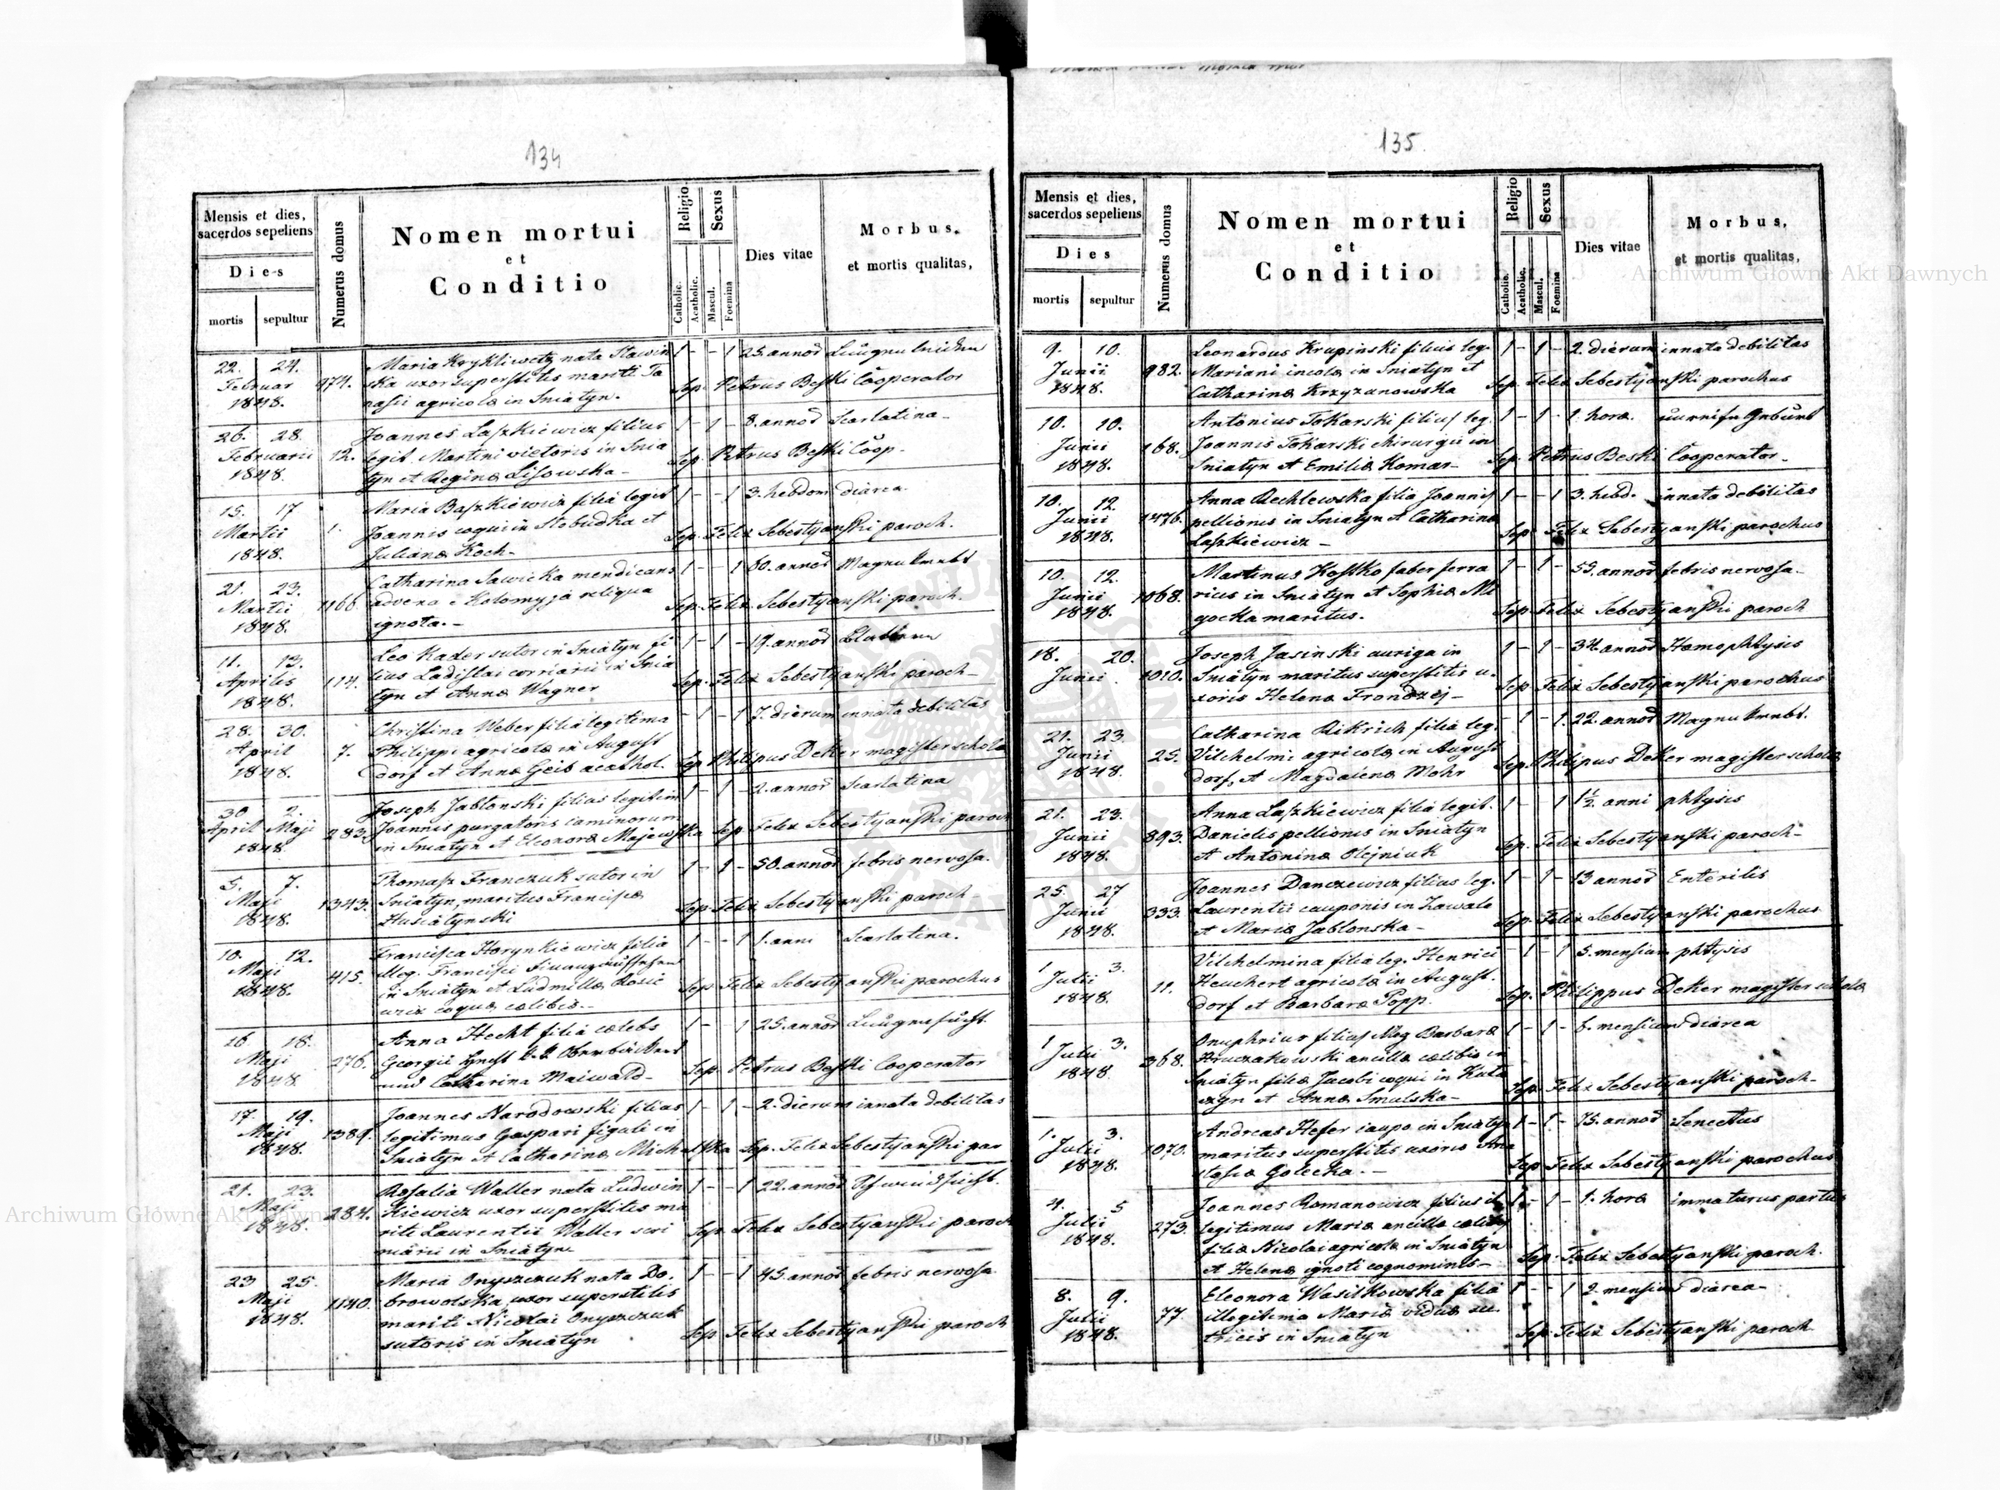 134
Mensis et dies,
sacerdos sepeliens
Dies
mortis sepultur
Numerus domus
Nomen mortui
et
Conditio
Religio
Catholic.
Acatholic.
Sexus
Mascul.
Foemina
Dies vitae
Morbus,
et mortis qualitas,
22. 24. Februar 1848. 974.
Maria Krykliewetz nata Stawin
ska uxor superstitis mariti Ta
nasii agricolæ in Sniatyn.
1 - - 1 25. annor
Sep. Petrus Beski Cooperator
26. 28. Februarii 1848. 12.
Joannes Laszkiewicz filius
legit. Martini vietoris in Snia
tyn et Reginæ Lisowska -
1 - 1 - 8. annor Scarlatina -
Sep. Petrus Beski Coop.
15. 17 Martii 1848. 1.
Maria Baszkiewicz filia legit
Joannis coqui in Stebudka et
Julianæ Koch -
1 - - 1 3. hebdom diarea
Sep. Felix Sebestyanski paroch.
21. 23. Martii 1848. 1166.
Catharina Sawicka mendicans
advena e Kolomyja reliqua
ignota. -
1 - - 1 60. annor
Sep. Felix Sebestyanski paroch.
11. 13. Aprilis 1848. 114.
Leo Kader sutor in Sniatyn fi
lius Ladislai corriarii in Snia
tyn et Annæ Wagner
1 - 1 - 19. annor
Sep. Felix Sebestyanski paroch -
28. 30. April 1848. 7.
Christina Weber filia legitima
Philippi agricolæ in August
dorf et Annæ Geib acathol.
- 1 - 1 7. dierum innata debilitas
Sep Philipus Deker magister scholæ
30 2. April Maji 1848. 283.
Joseph Jablonski filius legitim
Joannis purgatoris caminorum
in Sniatyn et Eleonoræ Majewska
1 - 1 - 2. annor Scarlatina
Sep. Felix Sebestyanski paroch
5. 7. Maji 1848. 1343.
Thomas Franczuk sutor in
Sniatyn, maritus Franciscæ
Husiatynski
1 - 1 - 50. annor febris nervosa.
Sep. Felix Sebestyanski paroch
10. 12. Maji 1848. 415.
Francisca Horynkiewicz filia
illeg. Francisci
in Sniatyn et Ludmillæ
coquæ cœlibis. -
1 - - 1 1. anni Scarlatina.
Sep. Felix Sebestyanski parochus
16. 18. Maji 1848. 276.
Anna Hecht filia cœlebs
Georgii
und Catharina Maiwald -
1 - - 1 25. annor
Sep. Petrus Beski Cooperator
17 19. Maji 1848. 1389.
Joannes Narodowski filius
legitimus Gaspari figuli in
Sniatyn et Catharinæ
1 - 1 - 2. dierum innata debilitas
Sep. Felix Sebestyanski par
21. 23. Maji 1848. 284.
Rosalia Walter nata Ludwin
kiewicz uxor superstitis ma
riti Laurentii Walter
in Sniatyn
1 - - 1 22. annor
Sep Felix Sebestyanski paroch
23 25. Maji 1848. 1140.
Maria Onyszczuk nata Do.
browolska, uxor superstitis
mariti Nicolai Onyszczuk
sutoris in Sniatyn
1 - - 1 45. annor febris nervosa
Sep. Felix Sebestyanski paroch
135.
Mensis et dies,
sacerdos sepeliens
Dies
mortis sepultur
Numerus domus
Nomen mortui
et
Conditio
Religio
Catholic.
Acatholic.
Sexus
Mascul.
Foemina
Dies vitae
Morbus,
et mortis qualitas,
9. 10. Junii 1848. 982.
Leonardus Krupinski filius leg.
Mariani incolæ in Sniatyn et
Catharinæ Krzyzanowska
1 - 1 - 2. dierum innata debilitas
Sep. Felix Sebestyanski parochus
10. 10. Junii 1848. 168.
Antonius Tokarski filius leg.
Joannis Tokarski chirurgii in
Sniatyn et Emiliæ Komar -
1 - 1 - 1. horæ
Sep. Petrus Beski Cooperator -
10. 12. Junii 1848. 1476.
Anna Rechlewska filia Joannis
pellionis in Sniatyn et Catharinæ
Laszkiewicz -
1 - - 1 3. hebd. innata debilitas
Sep. Felix Sebestyanski parochus
10. 12. Junii 1848. 1068.
Martinus Hostko faber ferra
rius in Sniatyn et Sophiæ Mi
gocka maritus.
1 - 1 - 55. annor febris nervosa -
Sep. Felix Sebestyanski paroch
18. 20. Junii 1010.
Joseph Jasinski auriga in
Sniatyn maritus superstitis u.
xoris Helenæ Frondzej -
1 - 1 - 34. annor Hæmophtysis
Sep Felix Sebestyanski parochus
21. 23. Junii 1848. 25.
Catharina Rikrich filia leg.
Vilhelmi agricolæ in August
dorf, et Magdalenæ Mohr
- 1 - 1. 22. annor
Sep. Philipus Deker magister scholæ
21. 23. Junii 1848. 893.
Anna Laszkiewicz filia legit.
Danielis pellionis in Sniatyn
et Antoninæ Olejniuk
1 - - 1 1½. anni phtysis
Sep. Felix Sebestyanski paroch -
25. 27 Junii 1848. 333.
Joannes Danczewicz filius leg.
Laurentii cauponis in Zawale
et Mariæ Jablonska -
1 - 1 - 13 annor Enteritis
Sep. Felix Sebestyanski parochus
1 3. Julii 1848. 11.
Vilhelmina filia leg. Henrici
Heuchert agricolæ in August.
dorf et Barbaræ Popp.
- 1 - 1 5. mensium phtysis
Sep. Philippus Deker magister scholæ
1 3. Julii 1848 368.
Onuphrius filius illeg Barbaræ
Hruczakowski ancillæ cœlibis in
Sniatyn filiæ Jacobi coqui in Kuta
et Annæ Smulska -
1 - 1 - 6. mensium diarea
Sep. Felix Sebestyanski paroch -
1. 3. Julii 1848. 1070.
Andreas Hefer caupo in Sniatyn
maritus superstitis uxoris Ana
stasiæ Golecka. -
1 - 1 - 75. annor Senectus
Sep Felix Sebestyanski parochus
4. 5 Julii 1848. 273.
Joannes Romanowicz filius il
legitimus Mariæ ancillæ cœlibis
filiæ Nicolai agricolæ in Sniatyn
et Helenæ ignoti cognominis -
1 - 1 - 1. horæ immaturus partus
Sep. Felix Sebestyanski paroch.
8. 9. Julii 1848. 77
Eleonora Wasilkowska filia
illegitima Mariæ viduæ su.
tricis in Sniatyn
1 - - 1 2. mensium diarea -
Sep. Felix Sebestyanski paroch
Archiwum Główne Akt Dawnych
Archiwum Główne Akt Dawnych